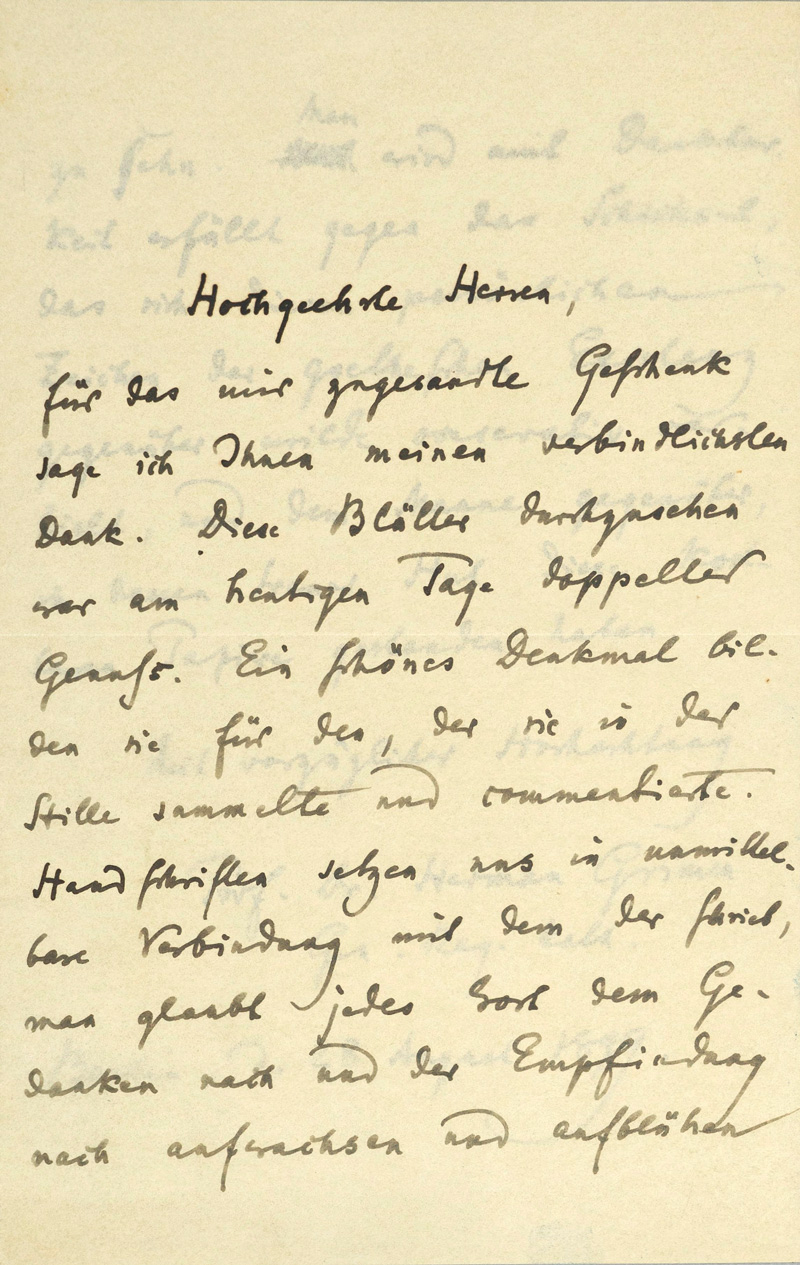 Hochgeehrte Herren,
für das mir zugesandte Geschenk
sage ich Ihnen meinen verbindlichsten
Dank. Diese Blätter durchzusehen
war am heutigen Tage doppelter
Genuss. Ein schönes Denkmal bil-
den sie für den, der sie in der
Stille sammelte und commentierte.
Handschriften setzen uns in unmittel-
bare Verbindung mit dem der schrieb,
man glaubt jedes Wort dem Ge-
danken nach und der Empfindung
nach aufwachsen und aufblühen